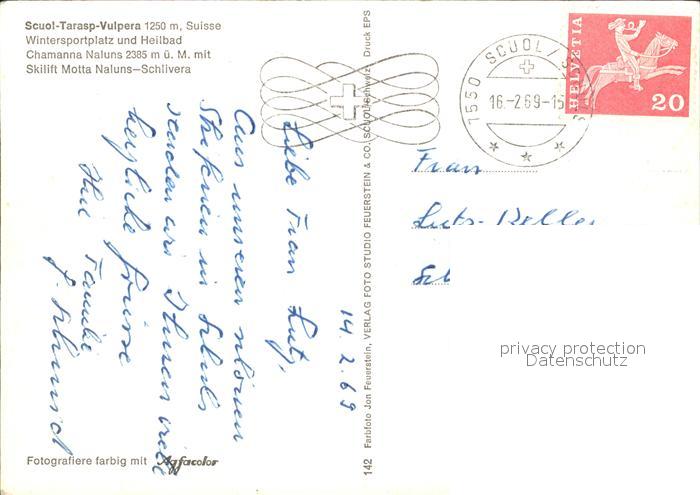 Scuol-Tarasp-Vulpera 1250 m, Suisse
Wintersportplatz und Heilbad
Chamanna Naluns 2385 m ü. M. mit
Skilift Motta Naluns–Schlivera
14. 2. 69
Liebe Frau Lutz,
Aus unseren schönen
Skiferien in Schuls
senden wir Ihnen viele
herzliche Grüsse
Ihre Familie
Fotografiere farbig mit Agfacolor
142 Farbfoto Jon Feuerstein, VERLAG FOTO STUDIO FEUERSTEIN & CO. SCUOL/Schweiz Druck EPS
1550 SCUOL/
16.-2.69-15
HELVETIA
20
Frau
Lutz-Keller
privacy protection
Datenschutz